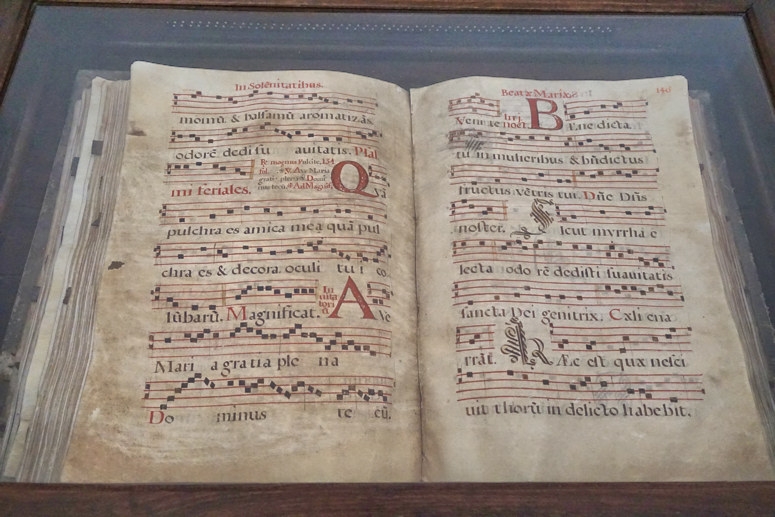 In Solẽnitatibus.
momũ & balsamũ aromatizãs
odorẽ dedi su auitatis. Psal
mi feriales. Q uã
pulchra es amica mea quã pul
chra es & decora. oculi tu i co
lũbarũ. Magnificat. A Ve
Mari a gratia ple na
Do minus te cũ.
Beatæ Mariæ.
Venite B Ene dicta.
tu in mulieribus & bñdictus
fructus vẽtris tui. Dñe Dñs
noster. S Icut myrrha e
lecta odo rẽ dedisti suauitatis
sancta Dei genitrix. Cæli ena
rrãt. H Æc est quæ nesci
uit thorũ in delicto habebit.